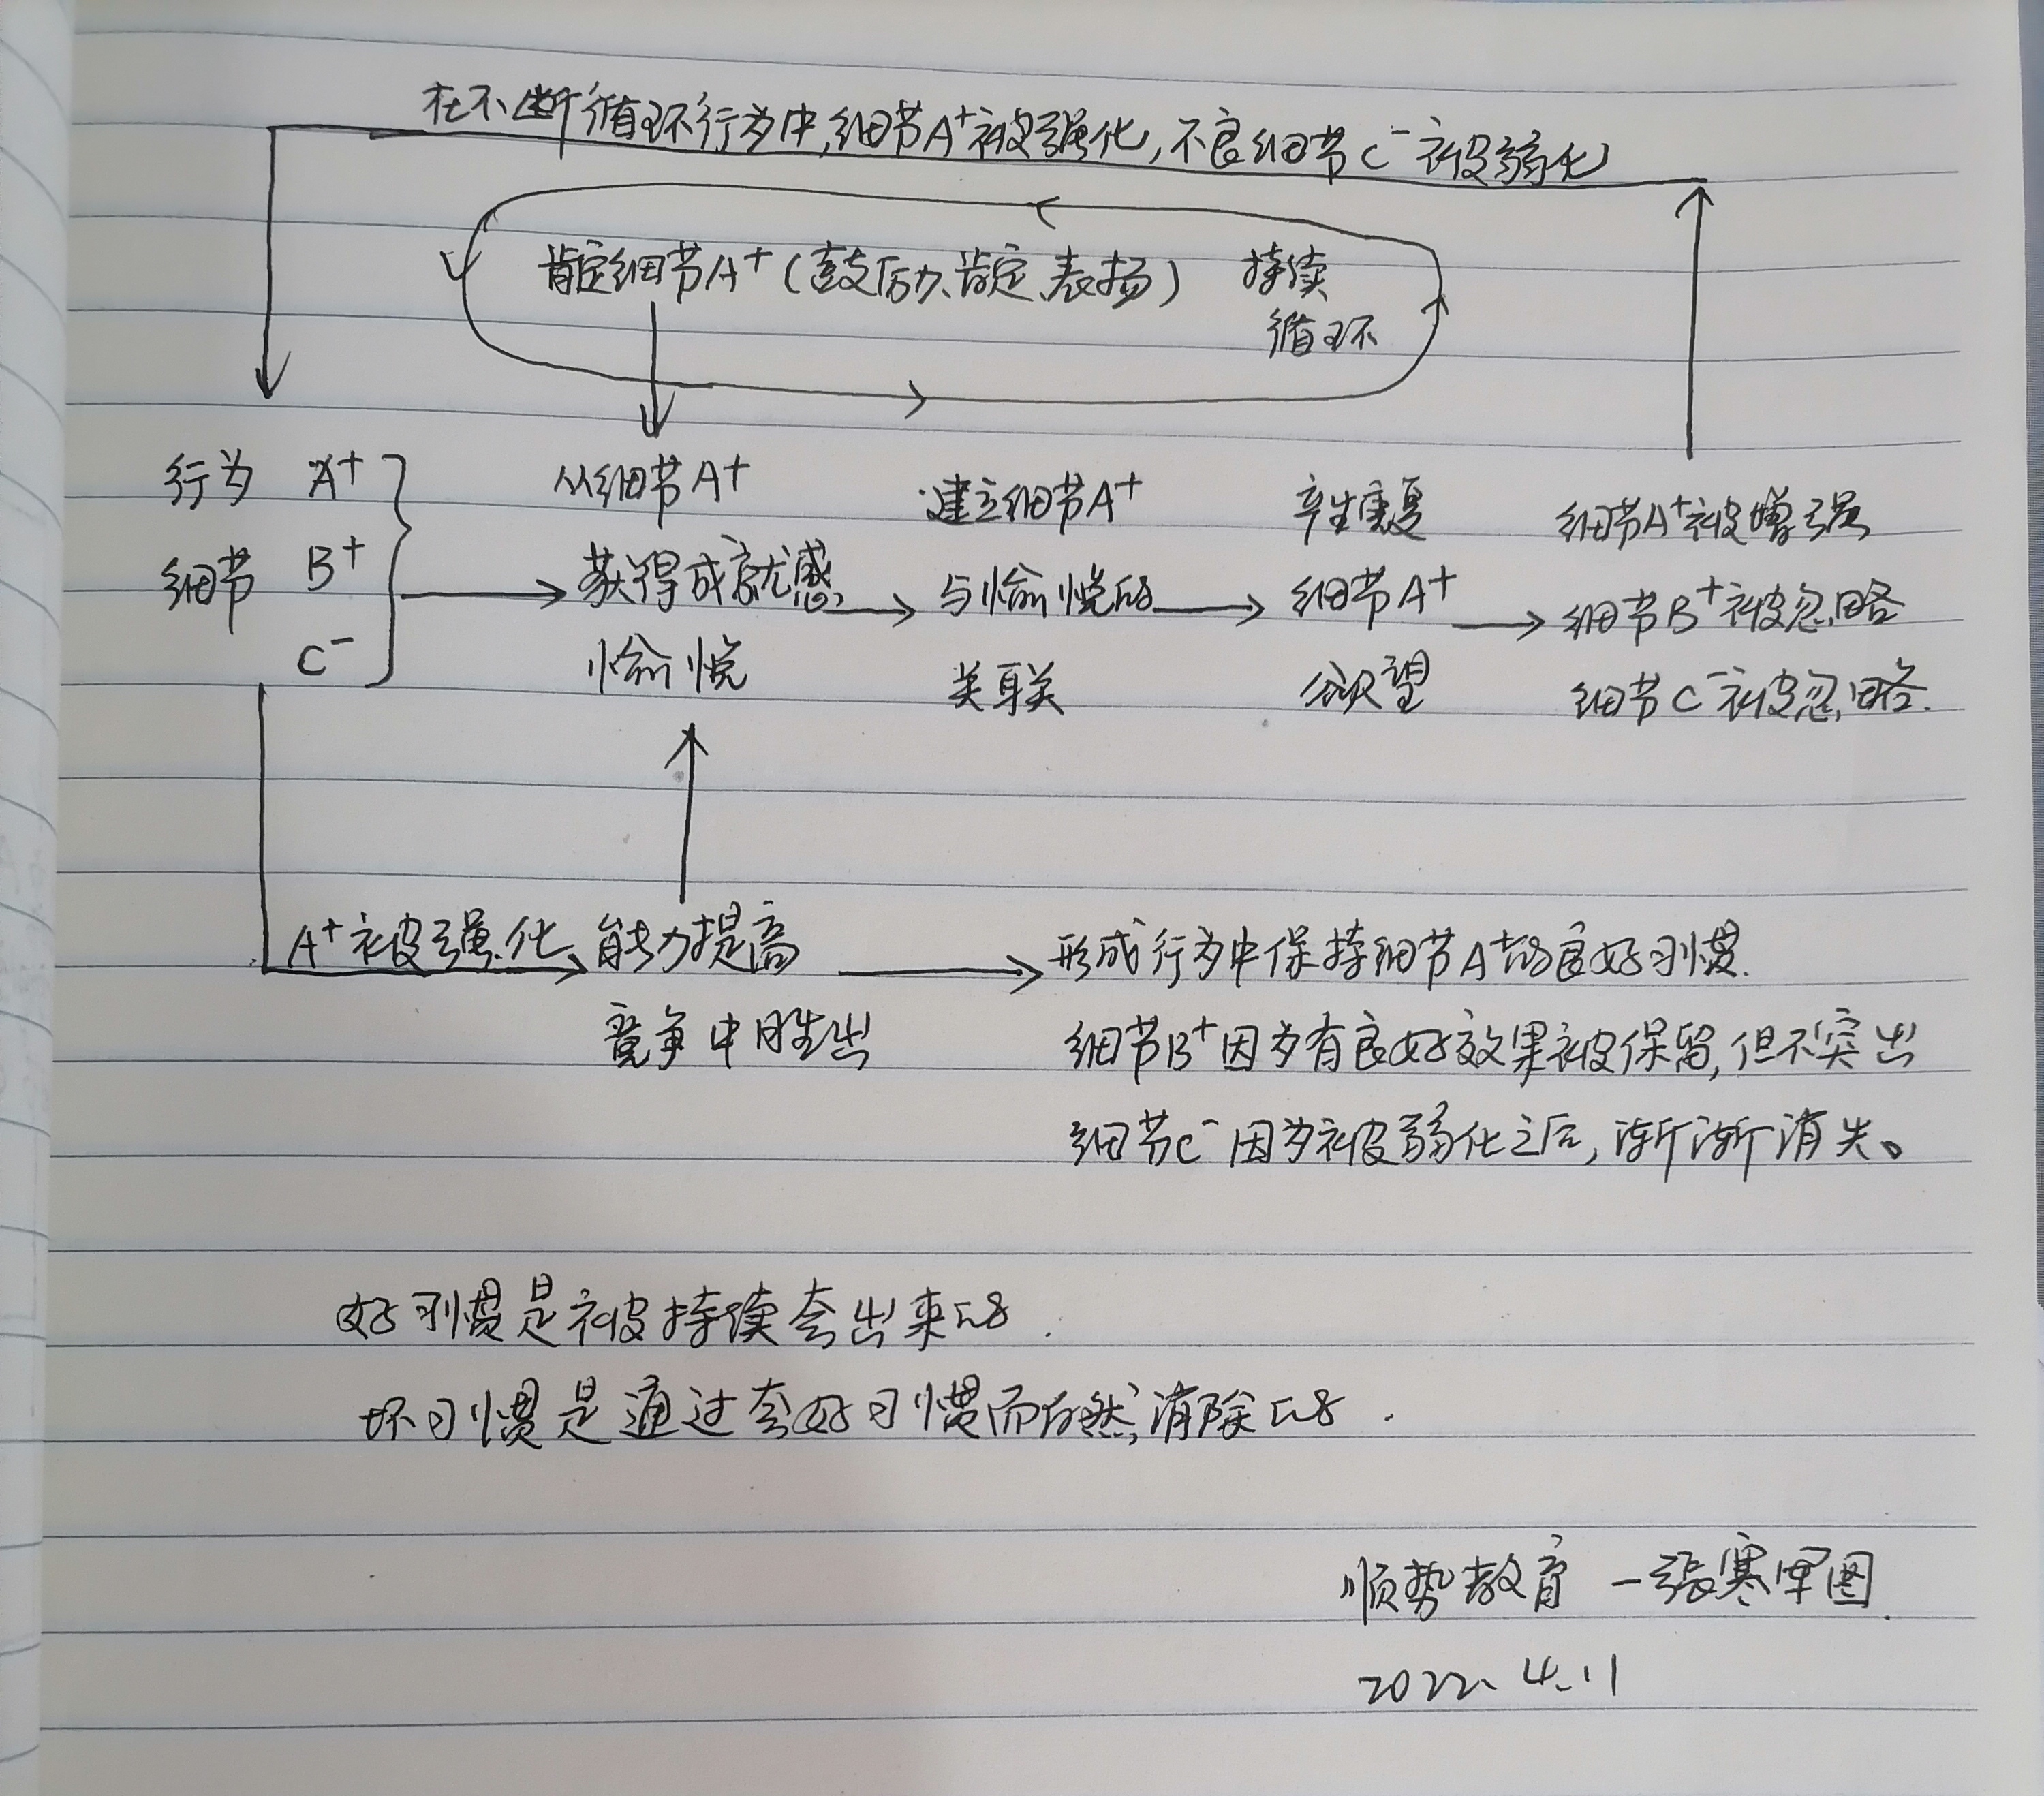 在不断循环行为中,细节A⁺被强化,不良细节C⁻被弱化
肯定细节A⁺(鼓历力、肯定、表扬) 持续
循环
行为 A⁺
细节 B⁺
C⁻
从细节A⁺
获得成就感,
愉悦
建立细节A⁺
与愉悦的
关联
产生重复
细节A⁺
欲望
细节A⁺被增强
细节B⁺被忽略
细节C⁻被忽略.
A⁺被强化 能力提高
竞争中胜出
形成行为中保持细节A⁺的良好习惯.
细节B⁺因为有良好效果被保留,但不突出
细节C⁻因为被弱化之后,渐渐消失。
好习惯是被持续夸出来的.
坏习惯是通过夸好习惯而自然消除的.
顺势教育 一张寒军图.
2022.4.11